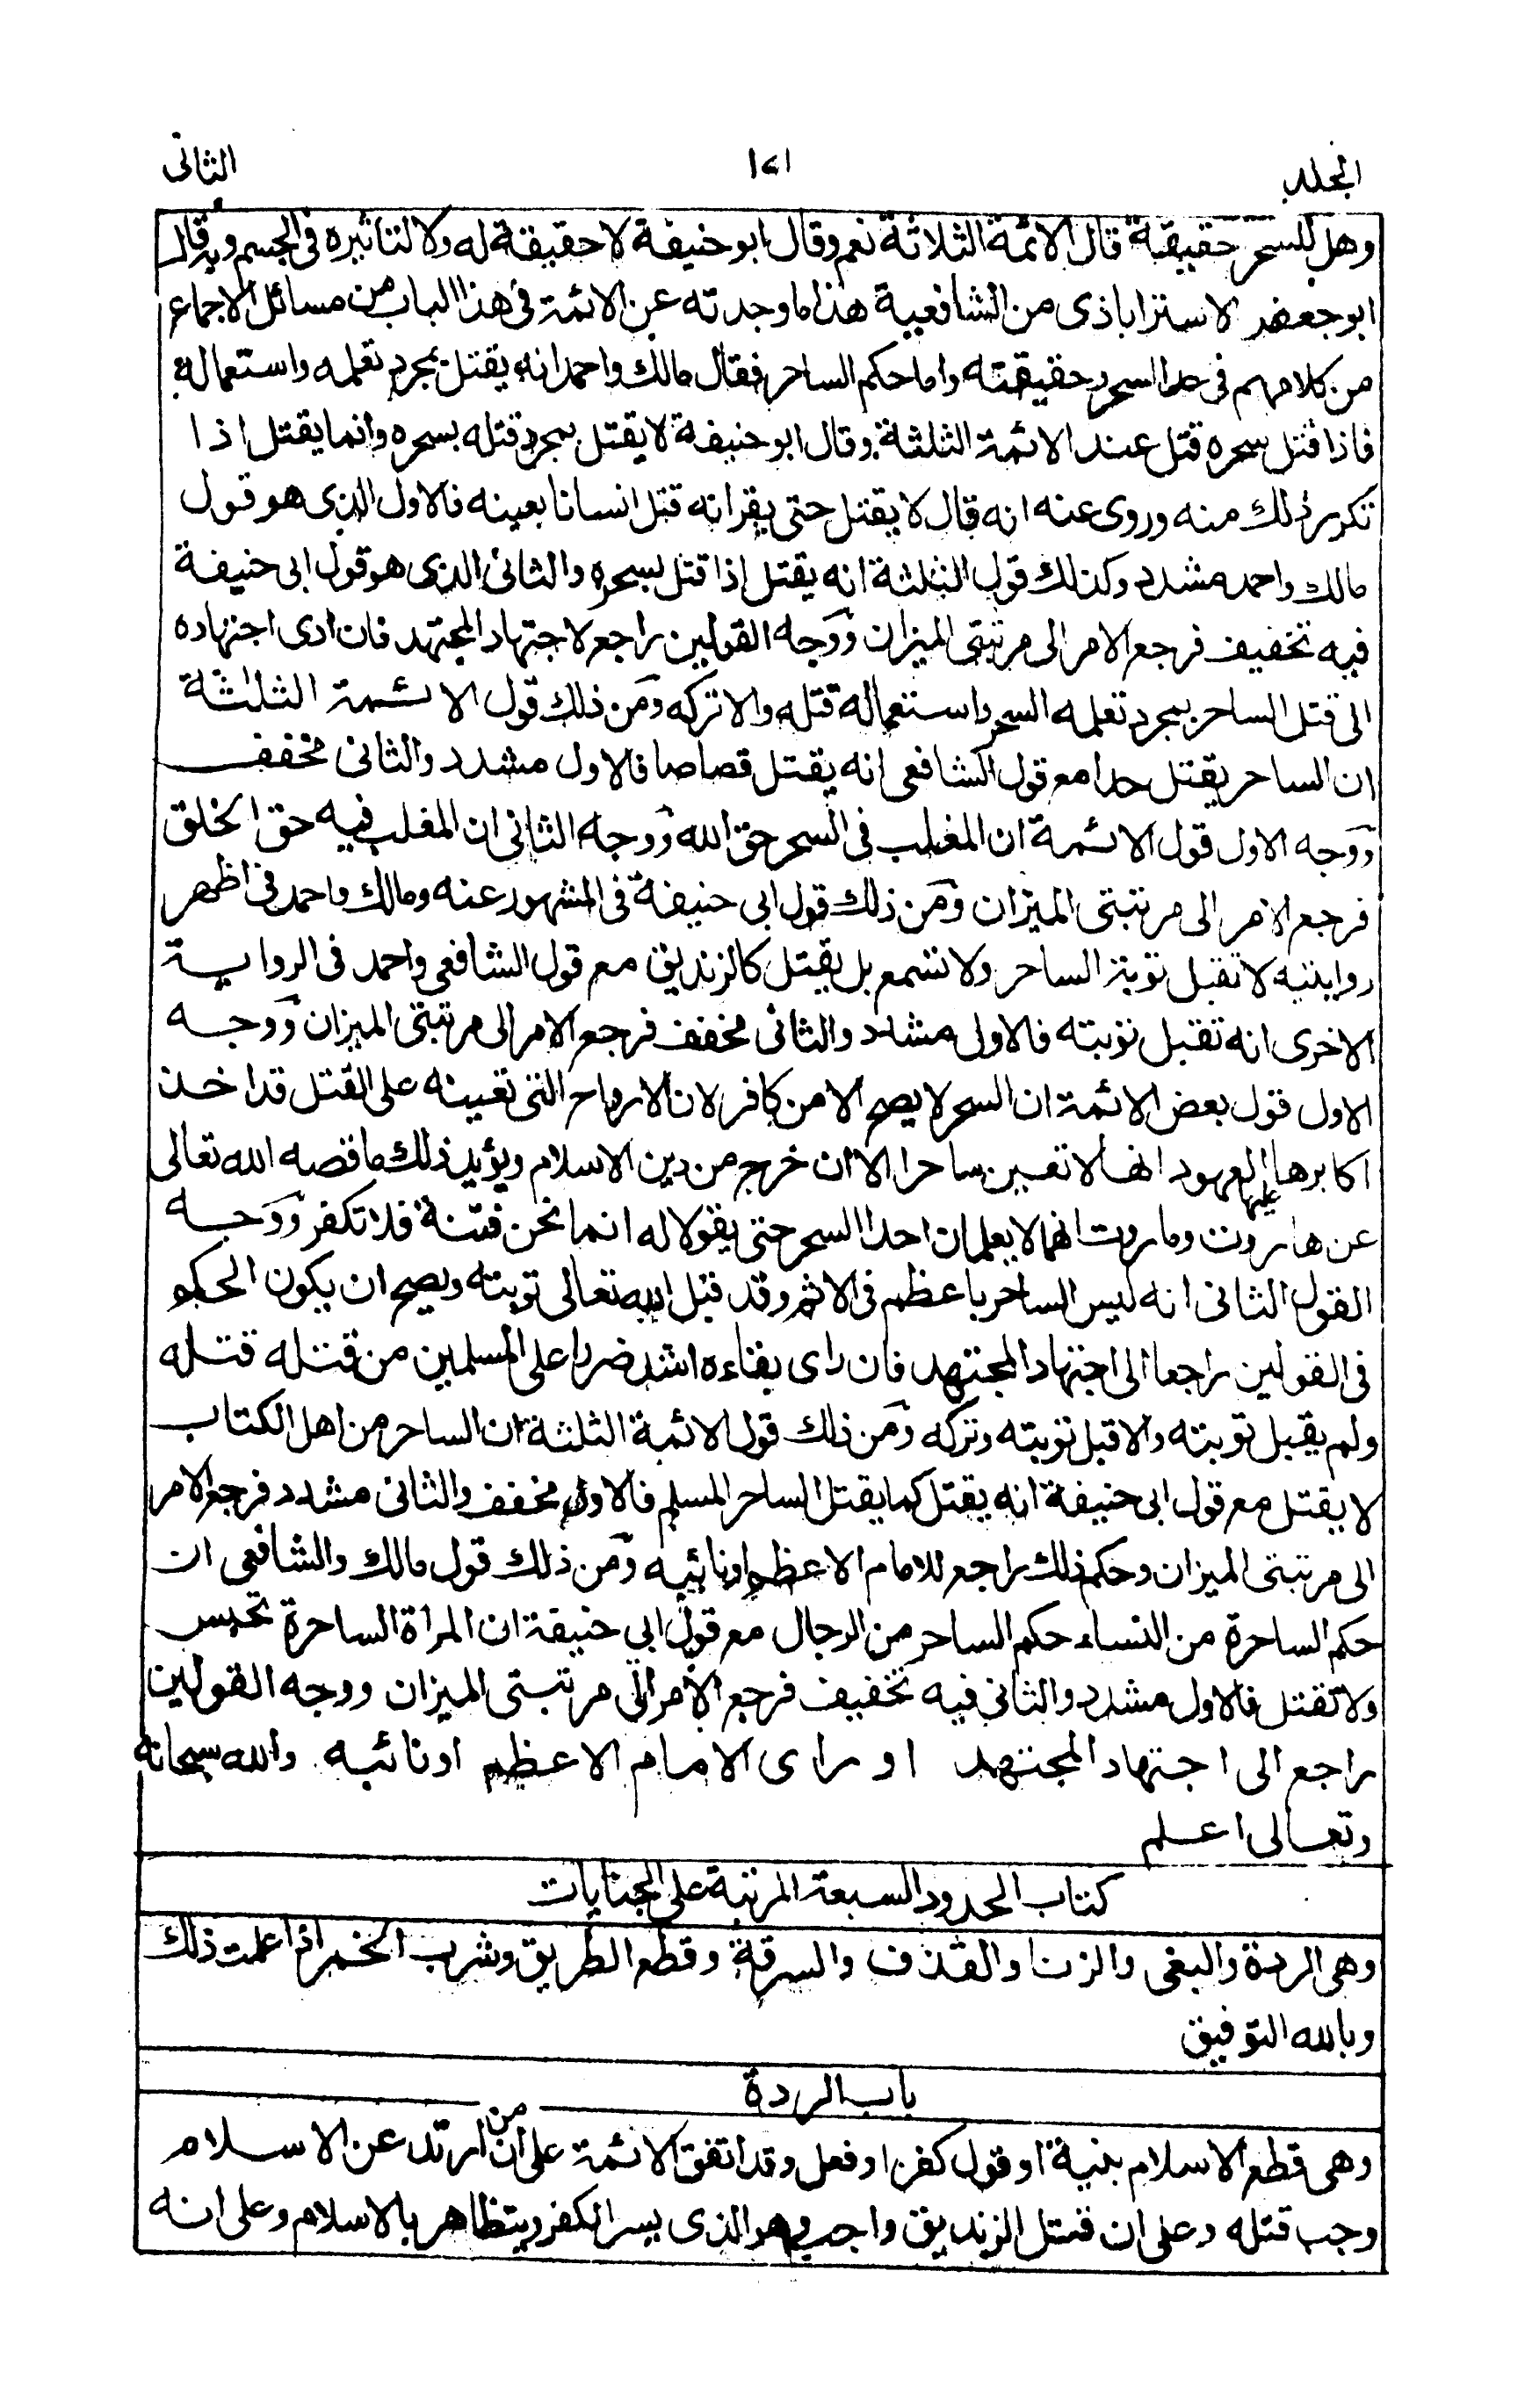 المجلد ١٧١ الثانى
وهل للسحر حقيقة قال الائمة الثلاثة نعم وقال ابو حنيفة لا حقيقة له ولا لتاثيره فى الجسم وبه قال
ابو جعفر الاسترابادى من الشافعية هذا ما وجدته عن الائمة فى هذا الباب من مسائل الاجماع
من كلامهم فى حد السحر وحقيقته واما حكم الساحر فقال مالك واحمد انه يقتل بمجرد تعلمه واستعماله
فاذا قتل بسحره قتل عند الائمة الثلثة وقال ابو حنيفة لا يقتل بمجرد قتله بسحره وانما يقتل اذا
تكرر ذلك منه وروى عنه انه قال لا يقتل حتى يقر انه قتل انسانا بعينه فالاول الذى هو قول
مالك واحمد مشدد وكذلك قول الثلثة انه يقتل اذا قتل بسحره والثانى الذى هو قول ابى حنيفة
فيه تخفيف فرجع الامر الى مرتبتى الميزان ووجه القولين راجع لاجتهاد المجتهد فان ادى اجتهاده
الى قتل الساحر بمجرد تعلمه السحر واستعماله قتله والا تركه ومن ذلك قول الائمة الثلثة
ان الساحر يقتل حدا مع قول الشافعى انه يقتل قصاصا فالاول مشدد والثانى مخفف
ووجه الاول قول الائمة ان المغلب فى السحر حق الله ووجه الثانى ان المغلب فيه حق الخلق
فرجع الامر الى مرتبتى الميزان ومن ذلك قول ابى حنيفة فى المشهور عنه ومالك واحمد فى اظهر
روايتيه لا تقبل توبة الساحر ولا تسمع بل يقتل كالزنديق مع قول الشافعى واحمد فى الرواية
الاخرى انه تقبل توبته فالاول مشدد والثانى مخفف فرجع الامر الى مرتبتى الميزان ووجه
الاول قول بعض الائمة ان السحر لا يصح الا من كافر لان الارواح التى تعينه على القتل قد اخذ
اكابرها عليها العهود انها لا تعين ساحرا الا ان خرج من دين الاسلام ويؤيد ذلك ما قصه الله تعالى
عن هاروت وماروت انهما لا يعلمان احدا السحر حتى يقولا له انما نحن فتنة فلا تكفر ووجه
القول الثانى انه ليس الساحر باعظم فى الاثم وقد قبل الله تعالى توبته ويصح ان يكون الحكم
فى القولين راجعا الى اجتهاد المجتهد فان راى بقاءه اشد ضررا على المسلمين من قتله قتله
ولم يقبل توبته والا قبل توبته وتركه ومن ذلك قول الائمة الثلثة ان الساحر من اهل الكتاب
لا يقتل مع قول ابى حنيفة انه يقتل كما يقتل الساحر المسلم فالاول مخفف والثانى مشدد فرجع الامر
الى مرتبتى الميزان وحكم ذلك راجع للامام الاعظم او نائبه ومن ذلك قول مالك والشافعى ان
حكم الساحرة من النساء حكم الساحر من الرجال مع قول ابي حنيفة ان المراة الساحرة تحبس
ولا تقتل فالاول مشدد والثانى فيه تخفيف فرجع الامر الى مرتبتى الميزان ووجه القولين
راجع الى اجتهاد المجتهد او راى الامام الاعظم او نائبه والله سبحانه
وتعالى اعلم
كتاب الحدود السبعة المرتبة على الجنايات
وهى الردة والبغى والزنا والقذف والسرقة وقطع الطريق وشرب الخمر اذا علمت ذلك
وبالله التوفيق
باب الردة
وهى قطع الاسلام بنية او قول كفر او فعل وقد اتفق الائمة على ان من ارتد عن الاسلام
وجب قتله وعلى ان قتل الزنديق واجب وهو الذى يسر الكفر ويتظاهر بالاسلام وعلى انه